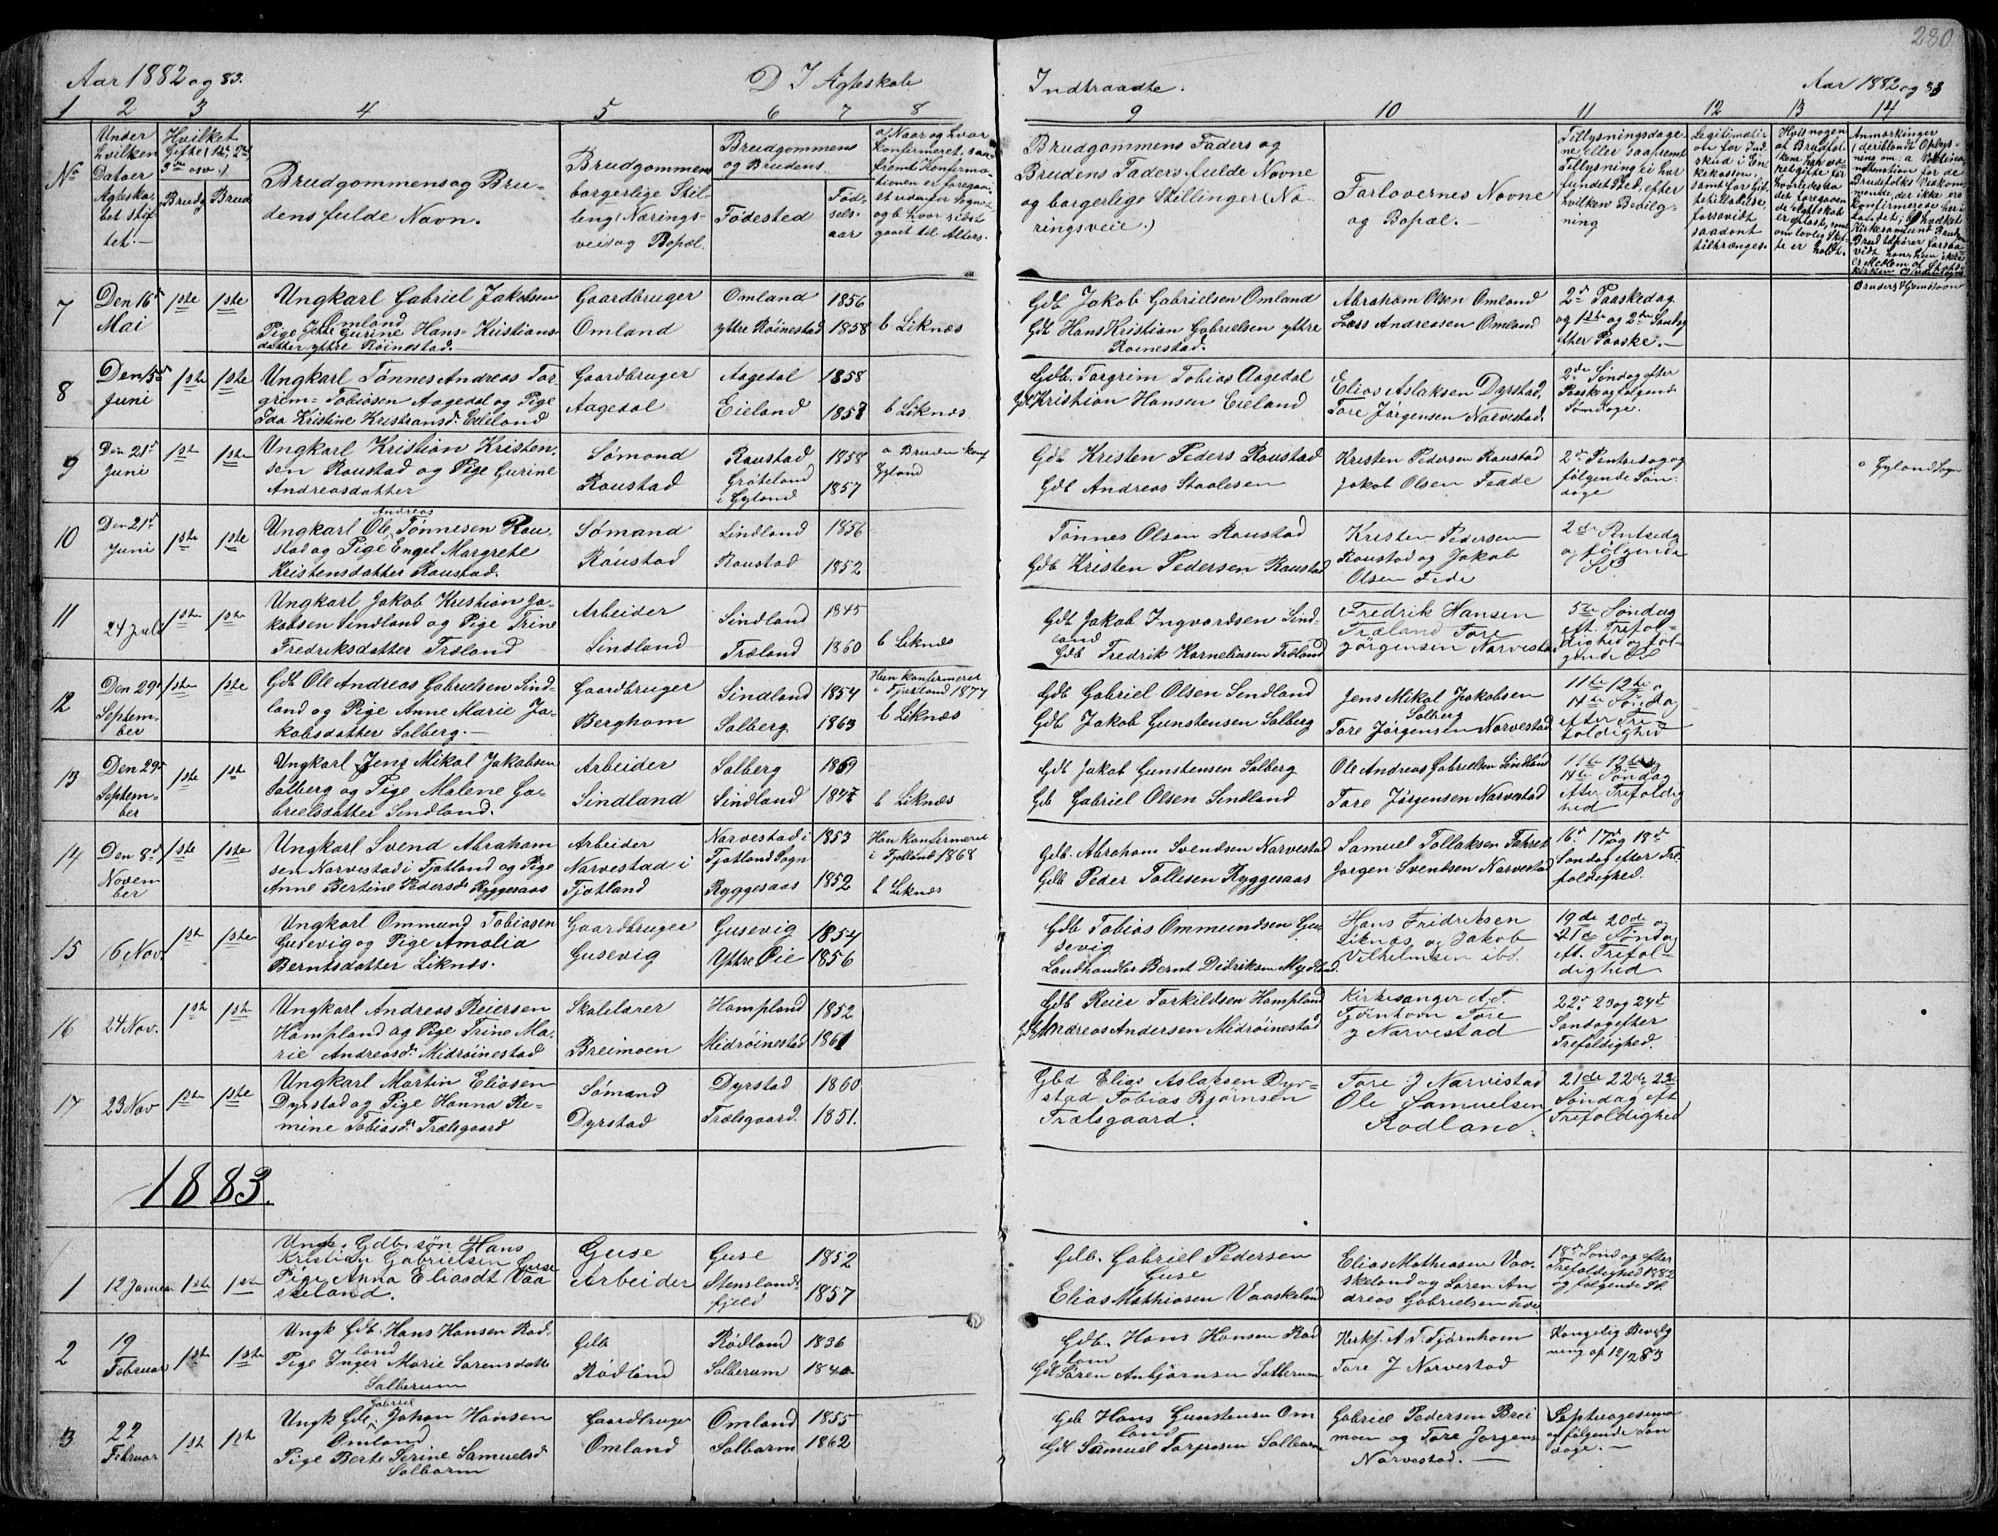 280
Aar 1882 og 83.
D I Ægteskab
Indtraadte.
Aar 1882 og 83
1 2 3 4 5 6 7 8 9 10 11 12 13 14
No
Under hvilken Datoer Ægteskabet stiftet.
Hvilket Gifte (1ste, 2det 3die osv.)
Brudg
Brud
Brudgommens og Brudens fulde Navn.
Brudgommens borgerlige Stilling (Næringsvei og Bopæl.
Brudgommens og Brudens
Fødested
Fødselsaar
Brudgommens Faders og Brudens Faders fulde Navne og borgerlige Stillinger (Næringsveie.)
Forlovernes Navne og Bopæl.
7
Den 16de Mai
1ste 1ste
Ungkarl Gabriel Jakobsen
Omland
Gurine Hans-Kristians-
datter yttre Røinestad.
Gaardbruger
Omland
Omland 1856
yttre Røinestad 1858
b Liknæs
Gdb Jakob Gabrielsen Omland
Gdb Hans Kristian Gabrielsen yttre
Røinestad.
Abraham Olsen Omland
Lars Andreassen Omland
2d Paaskedag
og 1ste og 2den Søndag
efter Paaske.
8
Den 15de Juni
1ste 1ste
Ungkarl Tønnes Andreas Tor-
grim-Tobiasen Aagedal og Pige
Kristine Kristiansd. Eieland
Gaardbruger
Aagedal
Aagedal 1858
Eieland 1858
b Liknæs
Gdb. Torgrim Tobias Aagedal
Gdb Kristian Hansen Eieland
Elias Aslaksen Dyrstad,
Tore Jørgensen Narvestad.
2den Søndag efter
Paaske og følgende
Søndage.
9
Den 21de Juni
1ste 1ste
Ungkarl Kristian Kristen-
sen Raustad og Pige Gurine
Andreasdatter
Sømand
Raustad
Raustad 1858
Grøteland
i Gyland 1857
a Bruden konf
Gyland
Gdb Kristen Peders Raustad
Gdb Andreas Staalesen
Kristen Pedersen Raustad
Jakob Olsen Fede
2den Pintsedag og
følgende Søn-
dage
a Gyland Sogn
10
Den 21de Juni
1ste 1ste
Andreas
Ungkarl Ole Tønnesen Rau-
stad og Pige Engel Margrete
Kristensdatter Raustad.
Sømand
Raustad
Sindland 1856
Raustad 1852
Tønnes Olsen Raustad
Gdb Kristen Pedersen Raustad
Kristen Pedersen
Raustad og Jakob
Olsen Fede
2den Pintsedag
og følgende
11
24 Juli
1ste 1ste
Ungkarl Jakob Kristian Ja-
kobsen Sindland og Pige Trine
Fredriksdatter Træland
Arbeider
Sindland
Sindland 1845
Træland 1860
b Liknæs
Gdb Jakob Ingvardsen Sind-
land
Gdb Fredrik Korneliasen Træland
Fredrik Hansen
Træland Tore
Jørgensen Narvestad
5te Søndag
eft. Trefol-
dighed og føl-
gende
12
Den 29de September
1ste 1ste
Gdb Ole Andreas Gabrielsen Sind-
land og Pige Anne Marie Ja-
kobsdatter Salberg.
Gaardbruger
Berghom
Sindland 1854
Salberg 1863
Hun konfirmeret
i Fjotland 1877
b Liknæs
Gdb Gabriel Olsen Sindland
Gdb Jakob Gunstensen Salberg
Jens Mikal Jakobsen
Salberg
Tore Jørgensen Narvestad
11te 12te og
14te Søndag
efter Tre-
foldighed
13
Den 29de September
1ste 1ste
Ungkarl Jens Mikal Jakobsen
Salberg og Pige Malene Ga-
brielsdatter Sindland.
Arbeider
Sindland
Salberg 1859
Sindland 1847
b Liknæs
Gdb Jakob Gunstensen Salberg
Gdb Gabriel Olsen Sindland
Ole Andreas Gabrielsen Sindland
Tore Jørgensen Narvestad
11te 12te og
14te Søndag
efter Trefoldig
hed
14
Den 8de November
1ste 1ste
Ungkarl Svend Abraham
sen Narvestad i Fjotland og Pige
Anne Bertine Pedersd. Ryggesaas
Arbeider
Narvestad i
Fjotland
Narvestad i 1853
Fjotland Sogn
Ryggesaas 1852
Han konfirmeret
i Fjotland 1868
b Liknæs
Gdb. Abraham Svendsen Narvestad
Gdb Peder Tollesen Ryggesaas
Samuel Tollaksen
Jørgen Svendsen Narvestad
16de 17de og 18de
Søndag efter Tre-
foldighed.
15
16 Nov.
1ste 1ste
Ungkarl Ommund Tobiasen
Gusevig og Pige Amalia
Berntsdatter Liknæs.
Gaardbruger
Gusevig
Gusevig 1854
Yttre Øie 1856
Gdb Tobias Ommundsen Gu-
sevig
Landhandler Bernt Didriksen
Hans Fridriksen
Liknæs og Jakob
Vilhelmsen ibd.
19de 20de og
21de Søndag
eft. Trefol-
dighed
16
24 Nov.
1ste 1ste
Ungkarl Andreas Reiersen
Hampland og Pige Trine Ma-
rie Andreasd. Midrøinestad
Skolelærer
Breimoen
Hampland 1852
Midrøinestad 1861
Gdb Reier Torkildsen Hampland
Gdb Andreas Andersen Midrøinestad
Kirkesanger A. T.
Tjørnhom Tore
J Narvestad
22de 23 og 24de
Søndag efter
Trefoldighed.
17
23 Nov
1ste 1ste
Ungkarl Martin Eliasen
Dyrstad og Pige Hanna Re-
mine Tobiasd. Trælsgaard
Sømand
Dyrstad
Dyrstad 1860
Trælsgaard. 1851.
Gbd Elias Aslaksen Dyr-
stad Tobias Bjørnsen
Trælsgaard.
Tore J Narvestad
Ole Samuelsen
Rødland.
21de 22de 23de
Søndag eft
Trefoldighed
1883.
1
12 Januar
1ste 1ste
Ungk. Gdb. søn Hans
Kristian Gabrielsen Guse
Pige Anna Eliasdt Vaa
skeland.
Guse
Arbeider
Guse 1852
Stenslands-
fjeld 1857
Gdb. Gabriel Pedersen
Guse
Elias Mathiasen Vaaskeland
Elias Mathiasen Vaa-
skeland og Søren An-
dreas Gabrielsen
18de Søndag efter
Trefoldighed 1882
og følgende
2
19 Februar
1ste 1ste
Ungk Gdb. Hans Hansen Rød-
land
Pige Inger Marie Sørensdatter
Salberum
Gdb
Rødland
Rødland 1836
Salberum 1840
Gdb. Hans Hansen Rød
land
Gdb Søren Anbjørnsen Salberum
Kirks. A. T. Tjørnhom
Tore J Narvestad
Kongelig Bevilg
ning af 12/2 83
3
22 Februar
1ste 1ste
Gabriel
Ungk Gdb. Johan Hansen
Omland
Pige Berte Serine Samuelsd
Salbarm
Gaardbruger
Omland
Omland 1855
Salbarm 1862
Gdb Hans Gunstensen Om
land
Gdb Samuel Salbarm
Gabriel Pedersen Brei
moen og Tore Jørgens
Narvestad.
Septuagesima
og følgende Søn
dage.